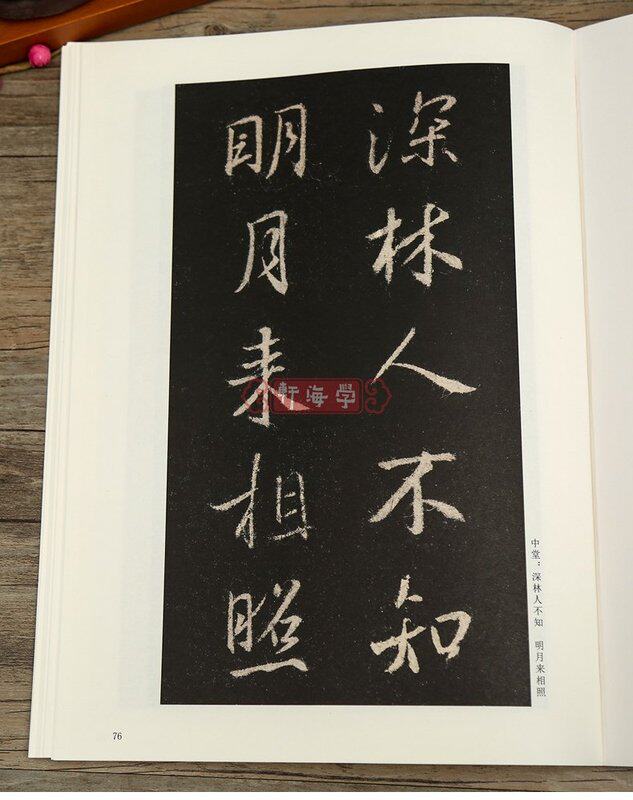 深林人不知
明月来相照
中堂：深林人不知　明月来相照
學海軒
76